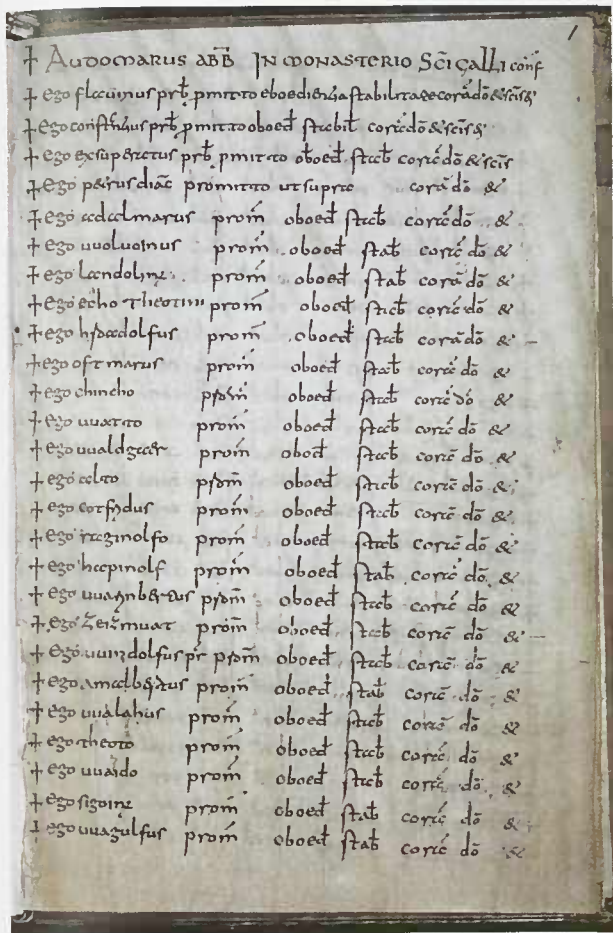 1
+ AUDOMARUS ABB̄ IN MONASTERIO SC̄I GALLI conf̄
+ ego flauinus prb̄ pmitto eboedienzia stabilitate corā dō & sc̄is &
+ ego constantius prb̄ pmitto oboed̄ stabil̄ corā dō & sc̄is &
+ ego exsuperatus prb̄ pmitto oboed̄ stab̄ corā dō & sc̄is
+ ego petrus diac̄ promitto ut supra corā dō &
+ ego adalmarus prom̄ oboed̄ stab̄ corā dō &
+ ego uuoluoinus prom̄ oboed̄ stab̄ corā dō &
+ ego landolinz prom̄ oboed̄ stab̄ corā dō &
+ ego echo theotini prom̄ oboed̄ stab̄ corā dō &
+ ego hrodolfus prom̄ oboed̄ stab̄ corā dō &
+ ego ostmarus prom̄ oboed̄ stab̄ corā dō &
+ ego chincho prom̄ oboed̄ stab̄ corā dō &
+ ego uuatto prom̄ oboed̄ stab̄ corā dō &
+ ego uualdgaer prom̄ oboed̄ stab̄ corā dō &
+ ego colto prom̄ oboed̄ stab̄ corā dō &
+ ego cotfridus prom̄ oboed̄ stab̄ corā dō &
+ ego raginolfo prom̄ oboed̄ stab̄ corā dō &
+ ego hapinolf prom̄ oboed̄ stab̄ corā dō &
+ ego uuarinbertus prom̄ oboed̄ stab̄ corā dō &
+ ego zeizmuat prom̄ oboed̄ stab̄ corā dō &
+ ego uuindolfus pr̄ prom̄ oboed̄ stab̄ corā dō &
+ ego amalbertus prom̄ oboed̄ stab̄ corā dō &
+ ego uualahus prom̄ oboed̄ stab̄ corā dō &
+ ego theoto prom̄ oboed̄ stab̄ corā dō &
+ ego uualdo prom̄ oboed̄ stab̄ corā dō &
+ ego sigoinz prom̄ oboed̄ stab̄ corā dō &
+ ego uuagulfus prom̄ oboed̄ stab̄ corā dō &